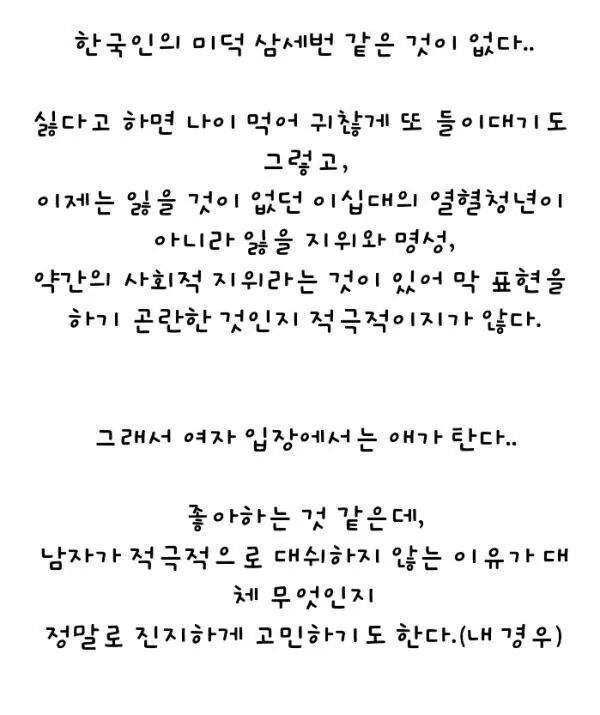 한국인의 미덕 삼세번 같은 것이 없다..
싫다고 하면 나이 먹어 귀찮게 또 들이대기도
그렇고,
이제는 잃을 것이 없던 이십대의 열혈청년이
아니라 잃을 지위와 명성,
약간의 사회적 지위라는 것이 있어 막 표현을
하기 곤란한 것인지 적극적이지가 않다.
그래서 여자 입장에서는 애가 탄다..
좋아하는 것 같은데,
남자가 적극적으로 대쉬하지 않는 이유가 대
체 무엇인지
정말로 진지하게 고민하기도 한다.(내 경우)